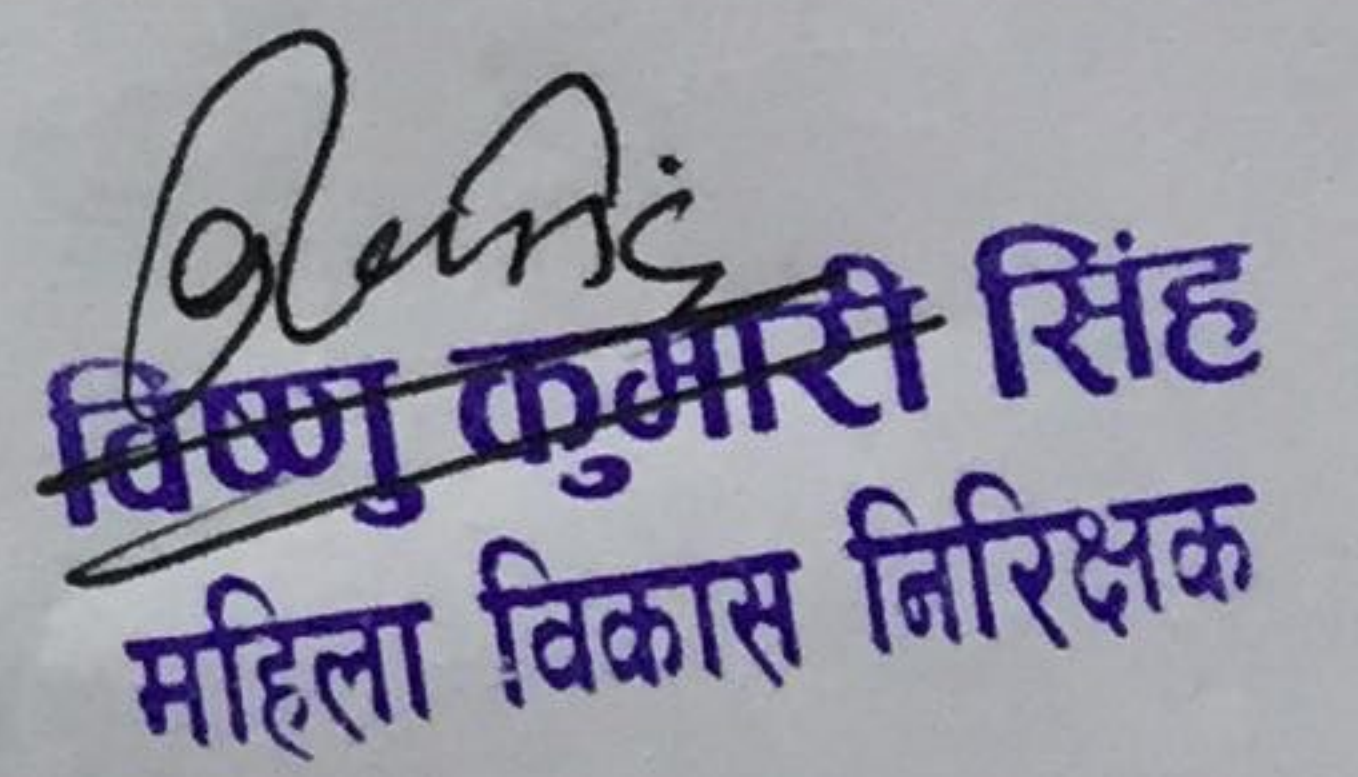 विष्णु कुमारी सिंह
महिला विकास निरिक्षक